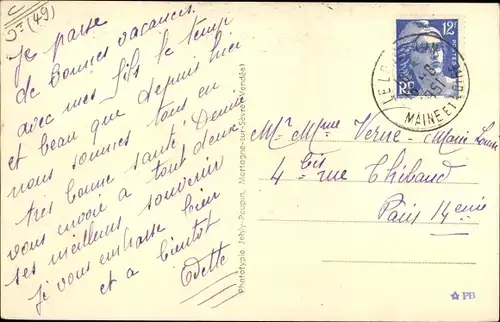 Je passe
de bonnes vacances
avec mes fils le temps
et beau que depuis hier
nous sommes tous en
très bonne santé Denise
vous envoie a tout deux
ses meilleurs souvenir
Je vous embrasse bien
et a bientot
Odette
Phototypie Jehly-Poupin, Mortagne-sur-Sèvre (Vendée)
12F
POSTES
RF
LE L
MAINE ET
Mr Mme Verne - Marie Louise
4 bis rue Thibaud
Paris 14eme
PB
(49)